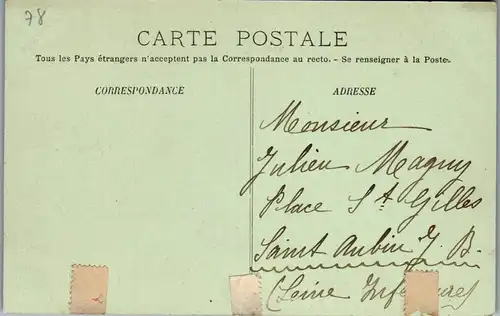 78
CARTE POSTALE
Tous les Pays étrangers n'acceptent pas la Correspondance au recto. - Se renseigner à la Poste.
CORRESPONDANCE
ADRESSE
Monsieur
Julien Magny
Place St Gilles
Saint Aubin J. B.
(Seine